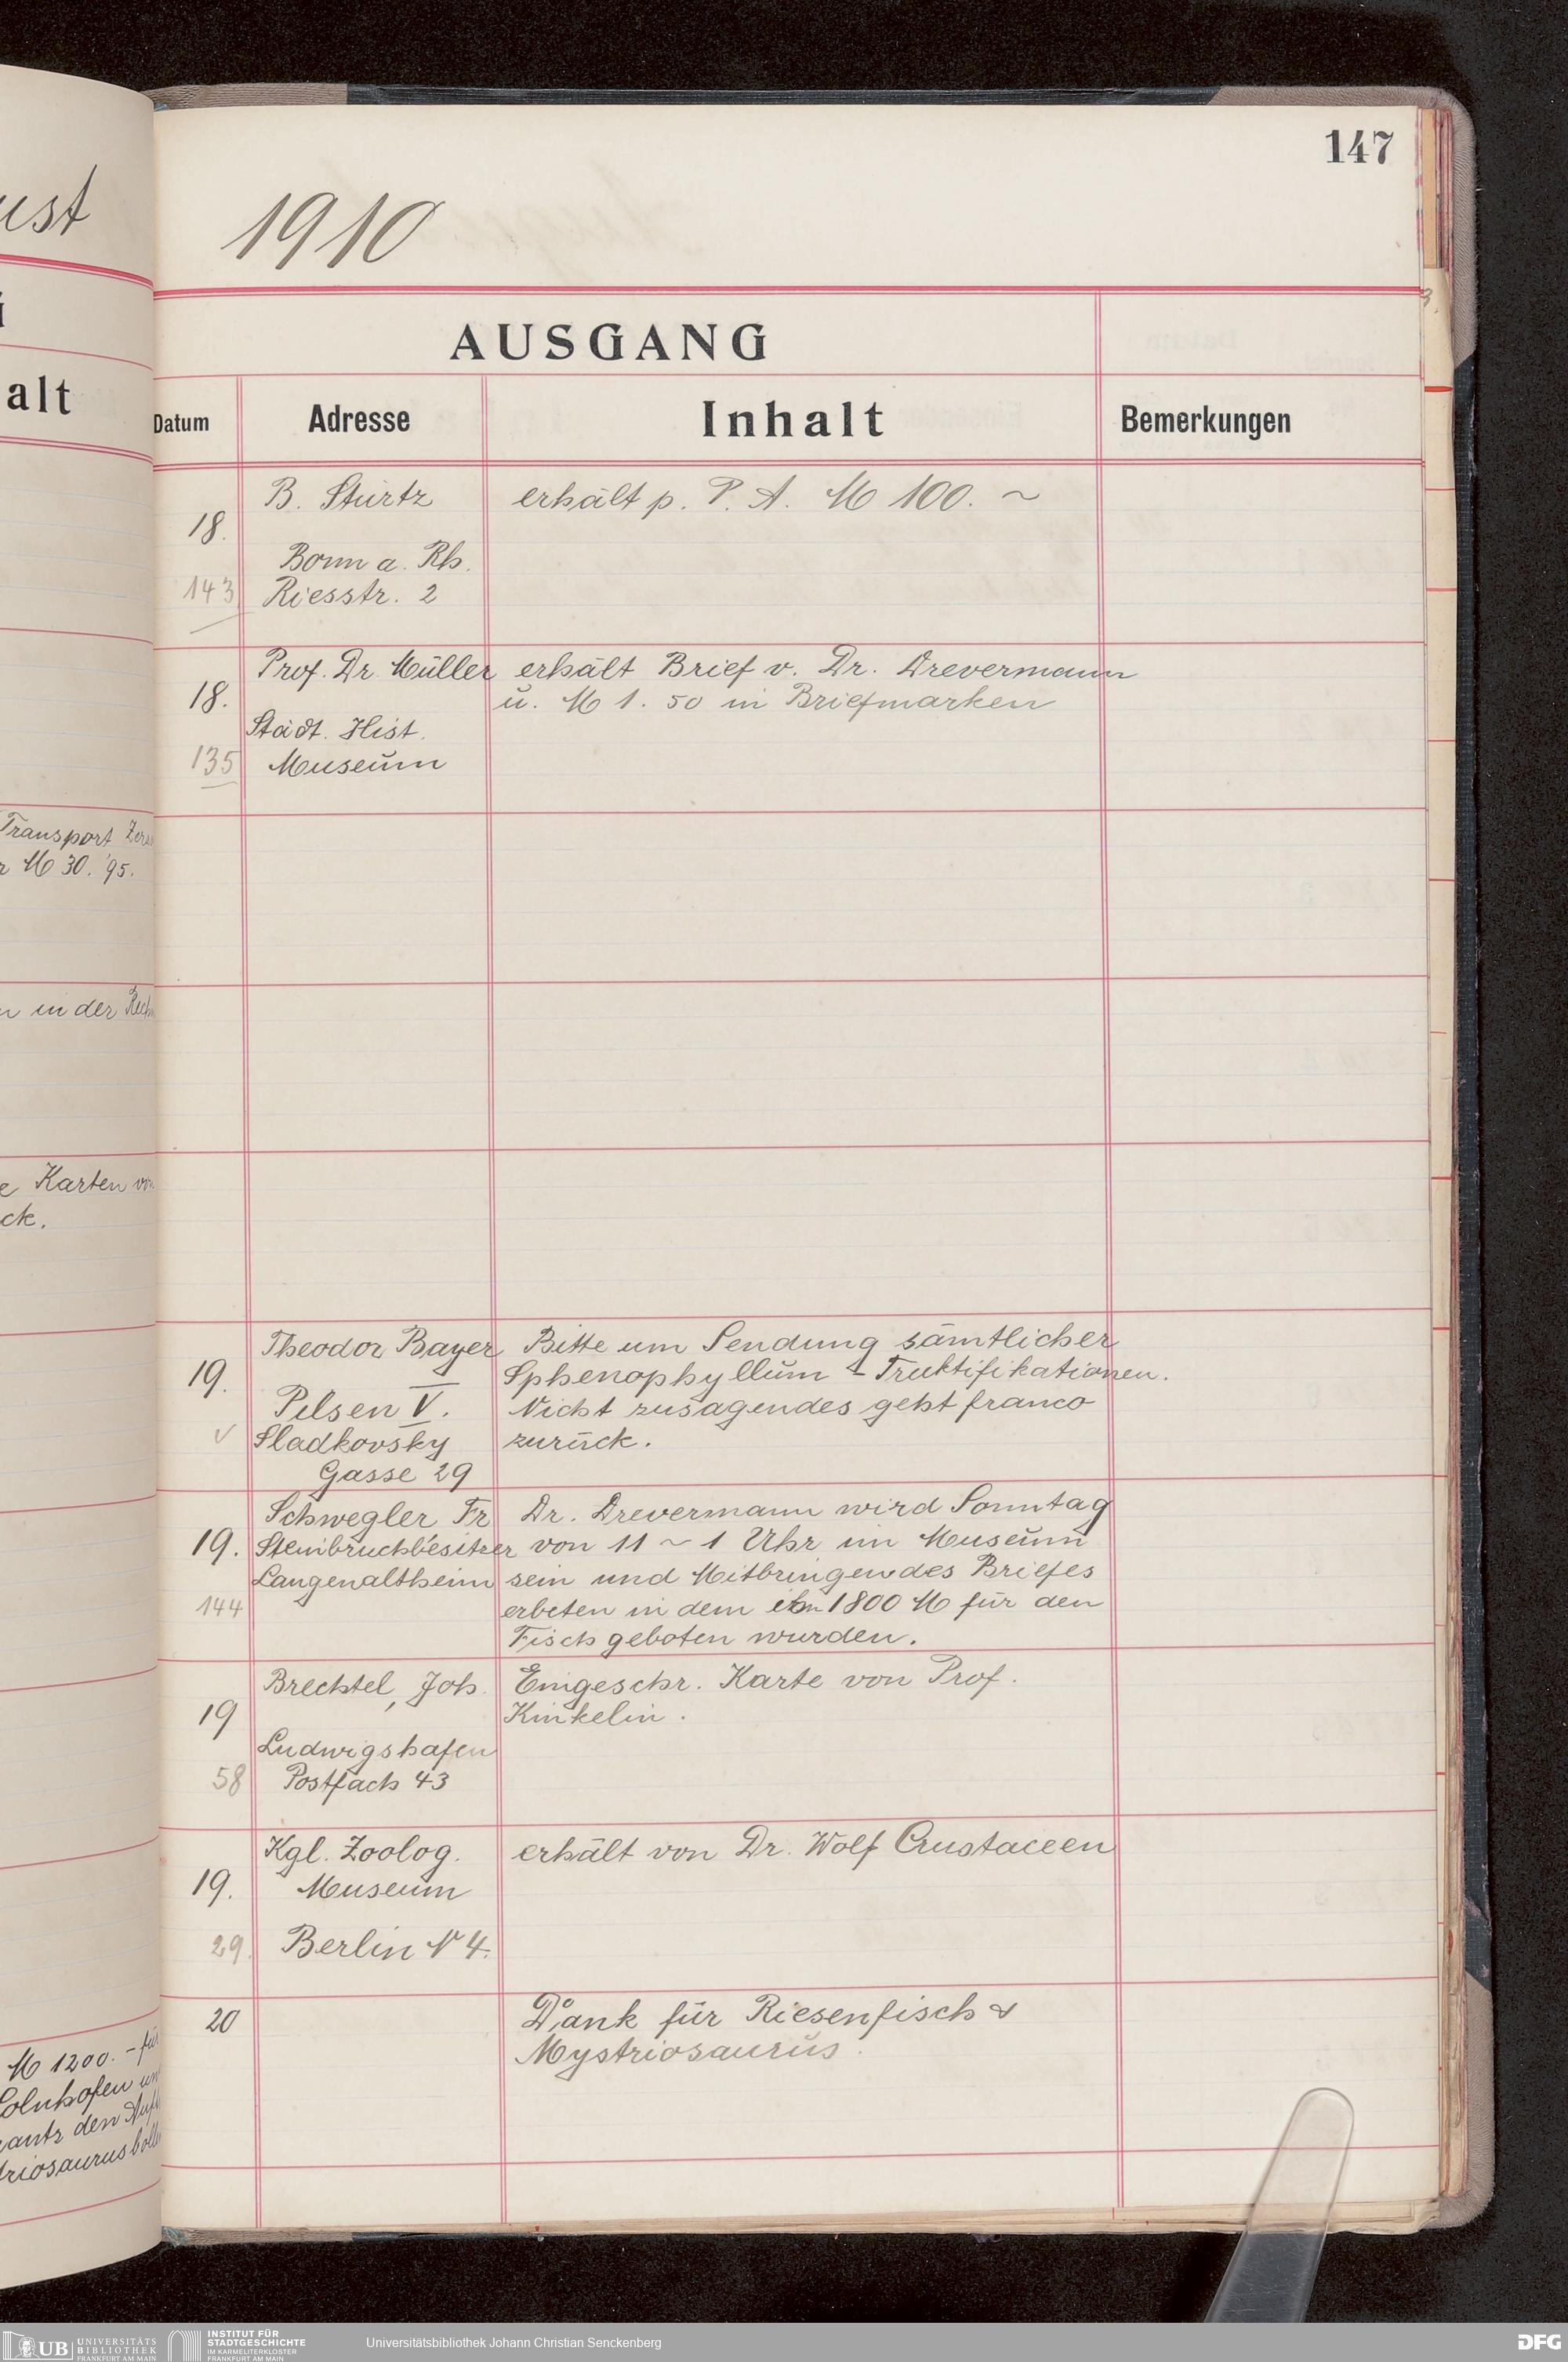 ust
alt
Transport
M 30. 95.
in der
Karten
ck.
M 1200. -
147
1910
AUSGANG
Datum
Adresse
Inhalt
Bemerkungen
18.
143
B. Stürtz
Bonn a. Rh.
Riesstr. 2
erhält p. P. A. M 100. ~
18.
135
Prof. Dr. Müller
Städt. Hist.
Museum
erhält Brief v. Dr. Drevermann
u. M 1. 50 in Briefmarken
19.
Theodor Bayer
Pilsen V.
Sladkovsky
Gasse 29
Bitte um Sendung sämtlicher
Sphenophyllum - Fruktifikationen.
Nicht zusagendes geht franco
zurück.
19.
144
Schwegler Fr
Steinbruchbesitzer
Langenaltheim
Dr. Drevermann wird Sonntag
von 11 ~ 1 Uhr im Museum
sein und Mitbringen des Briefes
erbeten in dem ihm 1800 M für den
Fisch geboten wurden.
19
58
Brechtel, Joh.
Ludwigshafen
Postfach 43
Eingeschr. Karte von Prof.
Kinkelin.
19.
29.
Kgl. Zoolog.
Museum
Berlin N 4.
erhält von Dr. Wolf Crustaceen
20
Dank für Riesenfisch &
Mystriosaurus.
UB UNIVERSITÄTS
BIBLIOTHEK
FRANKFURT AM MAIN
INSTITUT FÜR
STADTGESCHICHTE
IM KARMELITERKLOSTER
FRANKFURT AM MAIN
Universitätsbibliothek Johann Christian Senckenberg
DFG